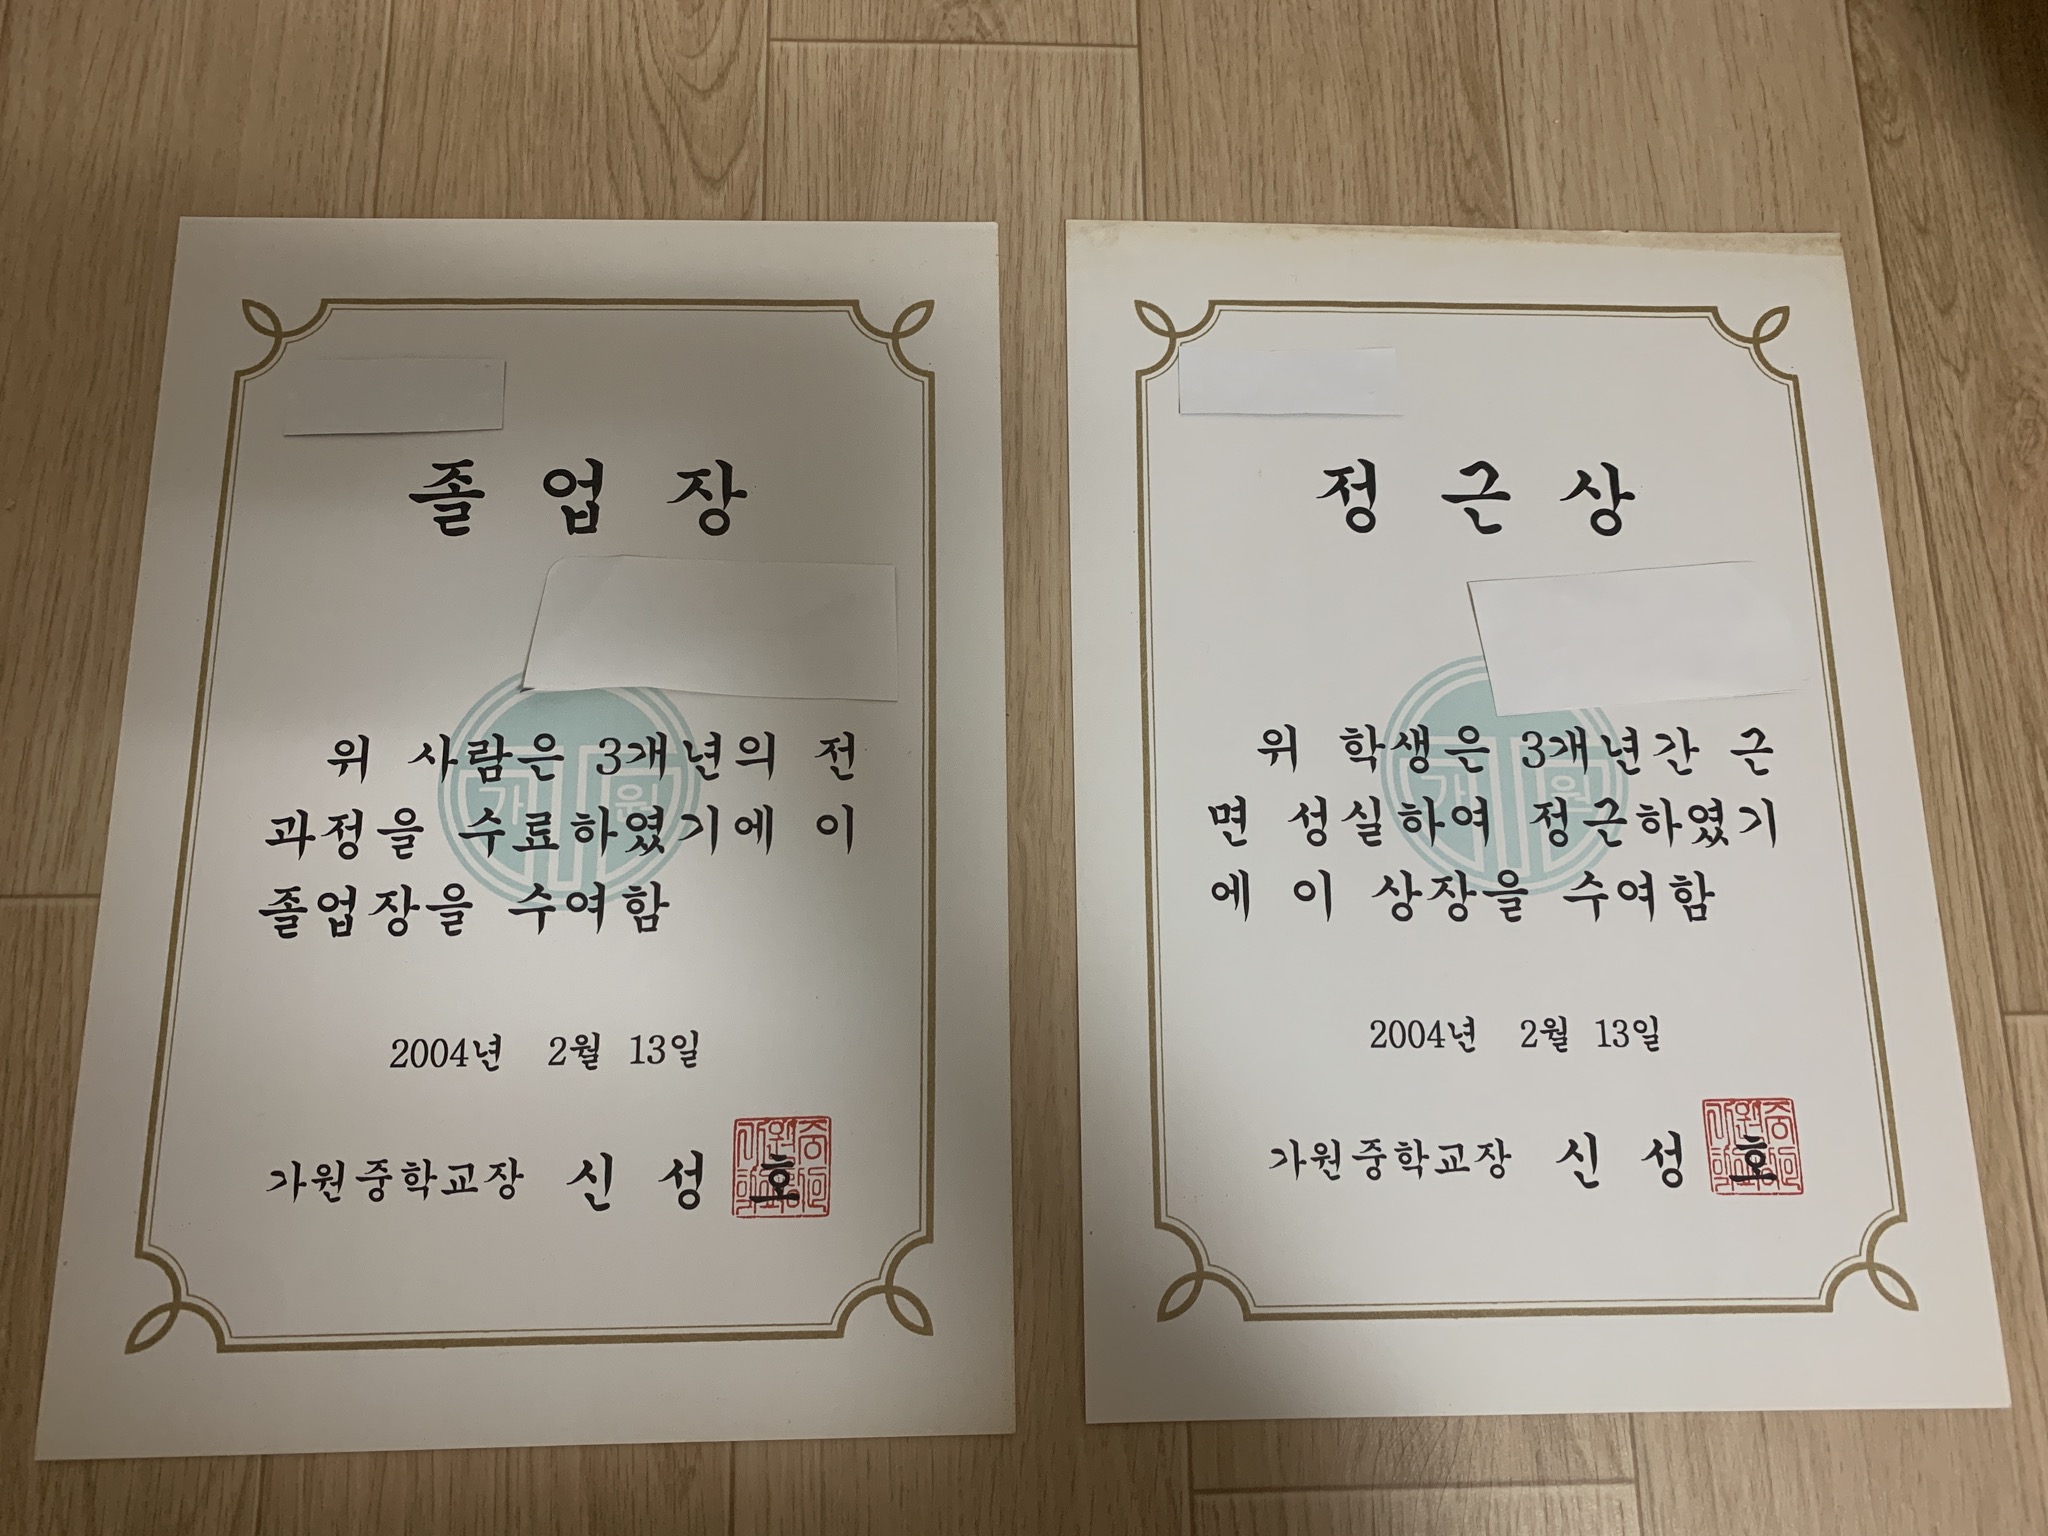 졸 업 장
위 사람은 3개년의 전
과정을 수료하였기에 이
졸업장을 수여함
2004년 2월 13일
가원중학교장 신 성 호
가 원
정 근 상
위 학생은 3개년간 근
면 성실하여 정근하였기
에 이 상장을 수여함
2004년 2월 13일
가원중학교장 신 성 호
가 원